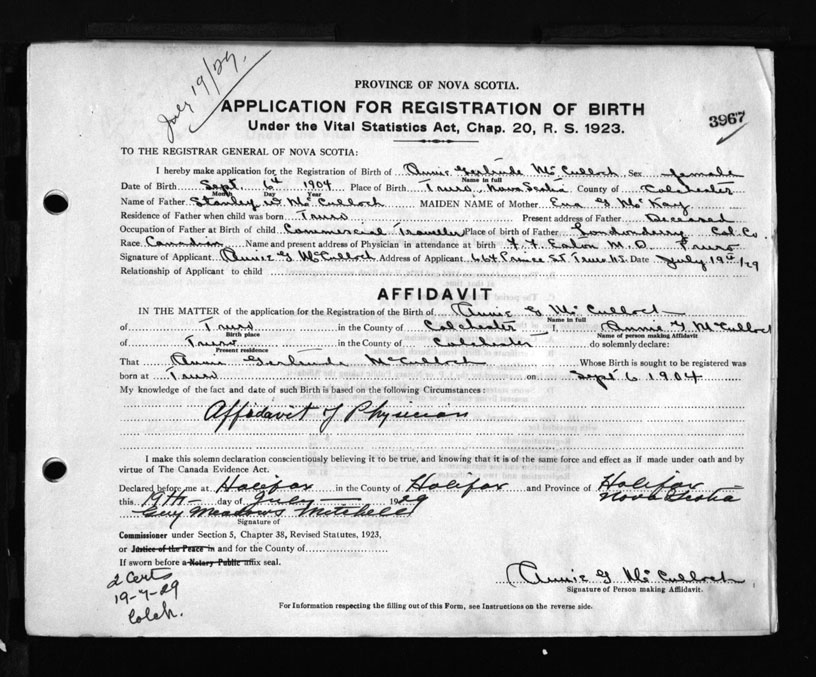 July 19/29.
PROVINCE OF NOVA SCOTIA.
APPLICATION FOR REGISTRATION OF BIRTH
3967
Under the Vital Statistics Act, Chap. 20, R. S. 1923.
TO THE REGISTRAR GENERAL OF NOVA SCOTIA:
I hereby make application for the Registration of Birth of Annie Gertrude McCulloch Sex female
Name in full
Date of Birth Sept. 6th 1904 Place of Birth Truro, Nova Scotia County of Colchester
Month Day Year
Name of Father Stanley W McCulloch MAIDEN NAME of Mother Ena G McKay
Residence of Father when child was born Truro Present address of Father Deceased
Occupation of Father at Birth of child Commercial Traveller Place of birth of Father Londonderry Col. Co.
Race Canadian Name and present address of Physician in attendance at birth F. F. Eaton M.D. Truro
Signature of Applicant Annie G McCulloch Address of Applicant 664 Prince St Truro N.S. Date July 19th/29
Relationship of Applicant to child
AFFIDAVIT
IN THE MATTER of the application for the Registration of the Birth of Annie G McCulloch
Name in full
of Truro in the County of Colchester I, Annie G McCulloch
Birth place Name of person making Affidavit
of Truro in the County of Colchester do solemnly declare:
Present residence
That Annie Gertrude McCulloch Whose Birth is sought to be registered was
born at Truro on Sept 6 1904
My knowledge of the fact and date of such Birth is based on the following Circumstances:
Affidavit of Physician
I make this solemn declaration conscientiously believing it to be true, and knowing that it is of the same force and effect as if made under oath and by
virtue of The Canada Evidence Act.
Declared before me at Halifax in the County of Halifax and Province of Halifax
this 19th day of July 1929 Nova Scotia
Guy Meadows Mitchell
Signature of
Commissioner under Section 5, Chapter 38, Revised Statutes, 1923,
or Justice of the Peace in and for the County of
If sworn before a Notary Public affix seal.
2 Certs
19-7-29
Colch.
Annie G McCulloch
Signature of Person making Affidavit.
For Information respecting the filling out of this Form, see Instructions on the reverse side.